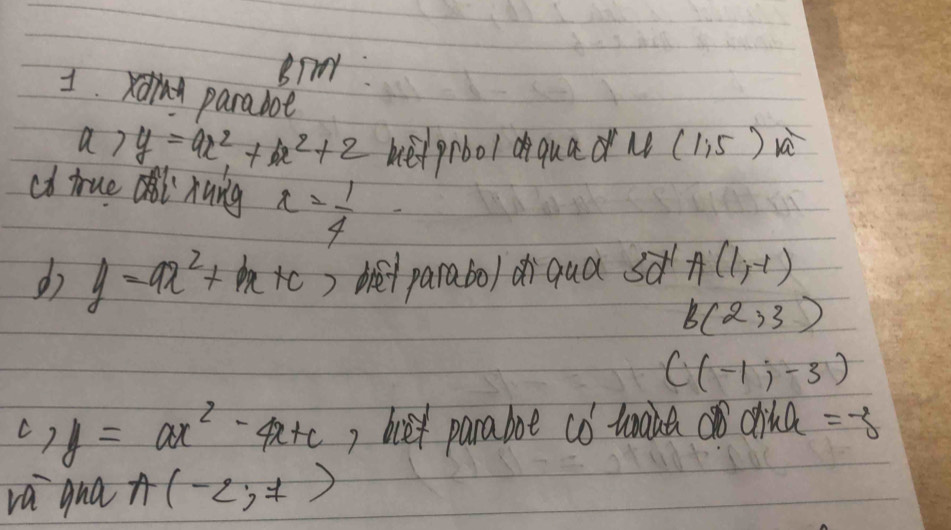 BTVN:
1. Xđịnh parabol
a, y = ax² + bx² + 2 biết prbol đi qua đ' M (1;5) và
có trục đối xứng x = 1/4
b, y = ax² + bx + c, biết parabol đi qua 3đ' A(1;-1)
B(2;3)
C(-1;-3)
c, y = ax² - 4x + c, biết parabol có hoành độ đỉnh = -3
và qua A(-2;1)